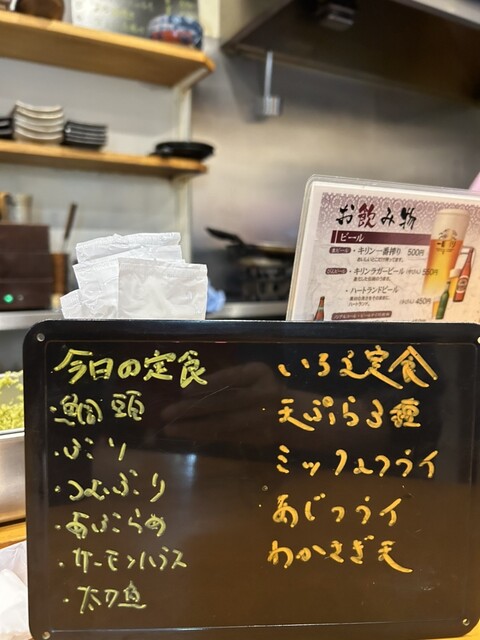 お飲み物
ビール
・キリン一番搾り 500円
・キリンラガービール (中びん) 550円
・ハートランドビール
(中びん) 450円
今日の定食
・鯛頭
・ぶり
・つむぶり
・あぶらめ
・サーモンハラス
・太刀魚
いろんな定食
・天ぷら3種
・ミックスフライ
・あじフライ
わかさぎ天